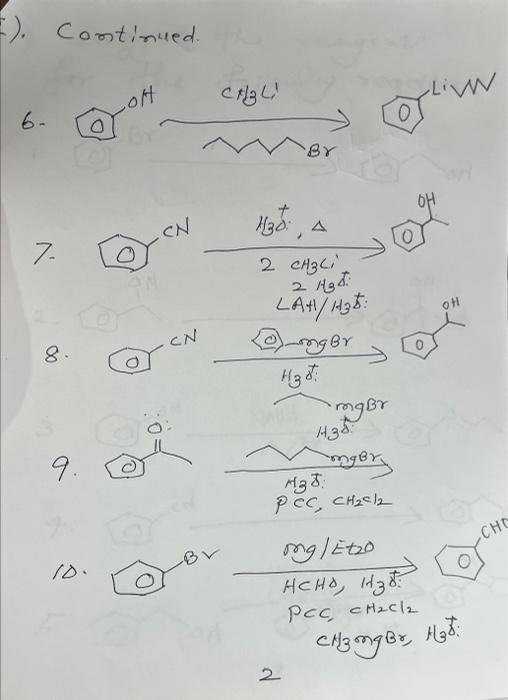 I). Continued.
6- OH CH3Li Li
Br
7- CN H3O+:, Δ OH
2 CH3Li
2 H3O+:
LAH/H3O+:
8. CN mgBr OH
H3O+:
mgBr
H3O+:
9. :O: mgBr
H3O+:
PCC, CH2Cl2
10. Br mg/Et2O CHO
HCHO, H3O+:
PCC, CH2Cl2
CH3mgBr, H3O+:
2